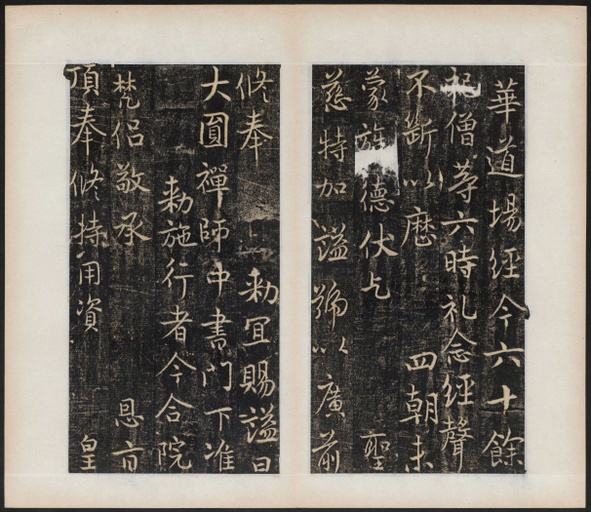 華道場經今六十餘
祀僧等六時礼念經聲
不斷以歷 四朝未
蒙旌德伏乞 聖
慈特加謚號以廣前
修奉 敕宜賜謚曰
大圓禪師中書門下准
敕施行者今合院
梵侶敬承 恩旨
頂奉修持用資 皇